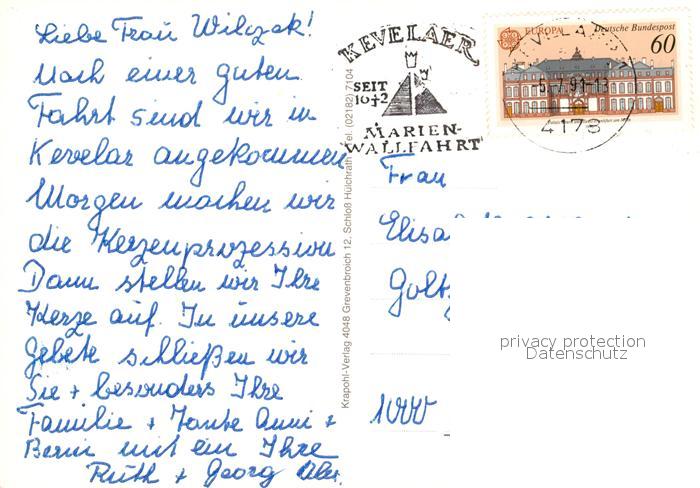 Liebe Frau Wilczak!
Nach einer guten
Fahrt sind wir in
Kevelar angekommen
Morgen machen wir
die Kerzenprozession
Dann stellen wir Ihre
Kerze auf. In unsere
Gebete schließen wir
Sie + besonders Ihre
Familie + Tante Anni +
Berni mit ein Ihre
Ruth + Georg
KEVELAER
SEIT
1642
MARIEN-
WALLFAHRT
EUROPA Deutsche Bundespost
60
-5.-7.91-13
4178
Krapohl-Verlag 4048 Grevenbroich 12, Schloß Hülchrath Tel. (02182) 7104
Frau
Elisa
Goltz
1000
privacy protection
Datenschutz